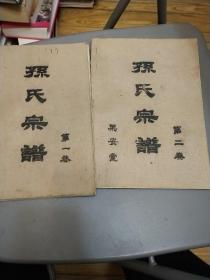 (1)
孫氏宗譜
第一卷
孫氏宗譜
第二卷